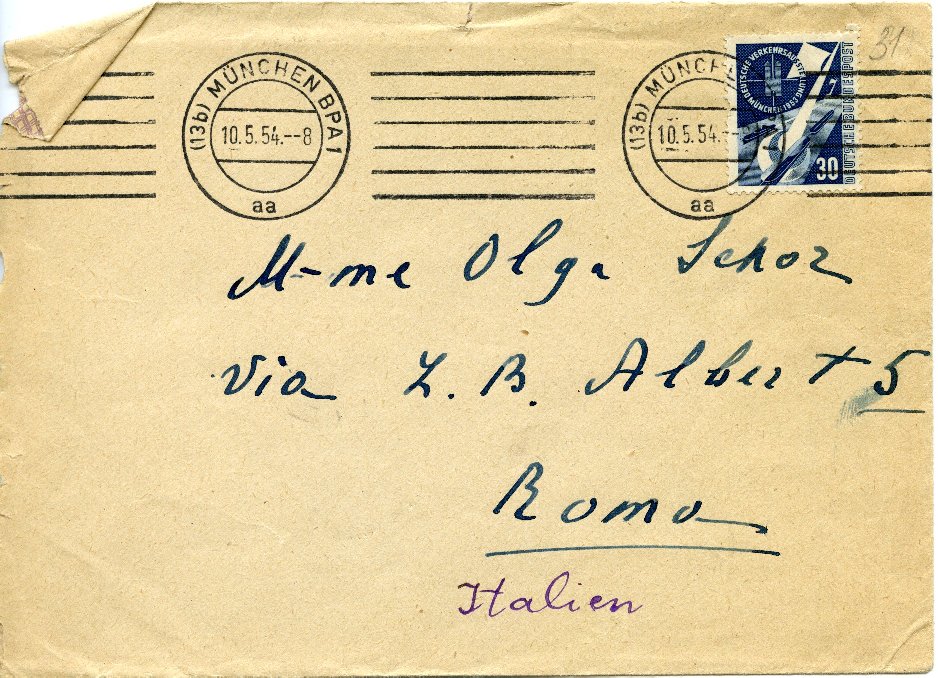 31
(13b) MÜNCHEN BPA1
10.5.54.--8
aa
(13b) MÜNCH
10.5.54.-
aa
DEUTSCHE VERKEHRSAUSSTELLUNG MÜNCHEN 1953
DEUTSCHE BUNDESPOST
30
M-me Olga Schor
Via L. B. Albert 5
Roma
Italien